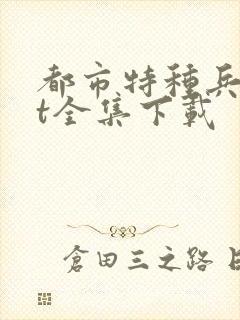 都市特種兵
t全集下載
倉田三之路 日